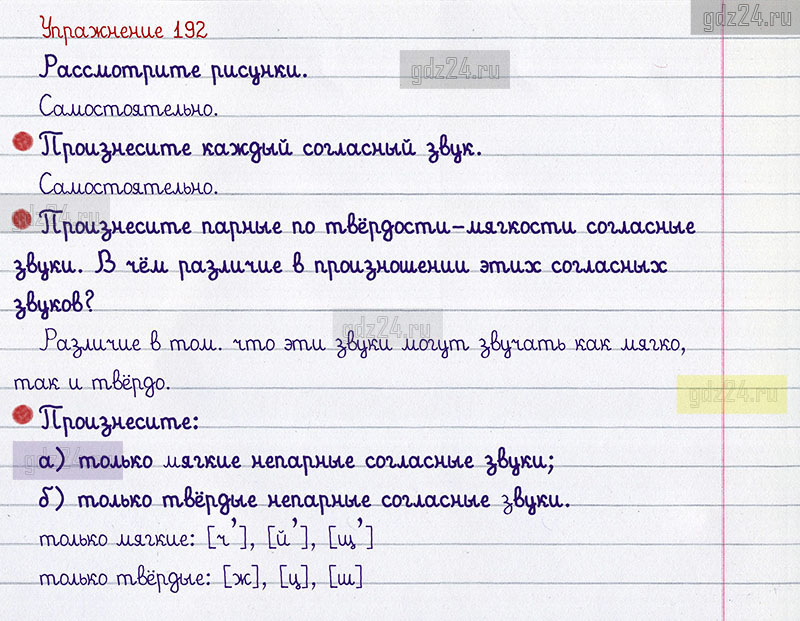 gdz24.ru
Упражнение 192
Рассмотрите рисунки.
gdz24.ru
Самостоятельно.
Произнесите каждый согласный звук.
Самостоятельно.
gdz24.ru
Произнесите парные по твёрдости-мягкости согласные
звуки. В чём различие в произношении этих согласных
звуков?
gdz24.ru
Различие в том. что эти звуки могут звучать как мягко,
так и твёрдо.
gdz24.ru
Произнесите:
gdz24.ru
а) только мягкие непарные согласные звуки;
б) только твёрдые непарные согласные звуки.
только мягкие: [ч'], [й'], [щ']
только твёрдые: [ж], [ц], [ш]